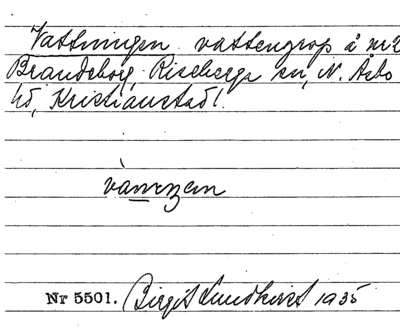 Vattningen vattengrop å nr 2
Brandeborg, Riseberga sn, N. Åsbo
hd, Kristianstads l.
Nr 5501. Birgit Lundkvist 1935